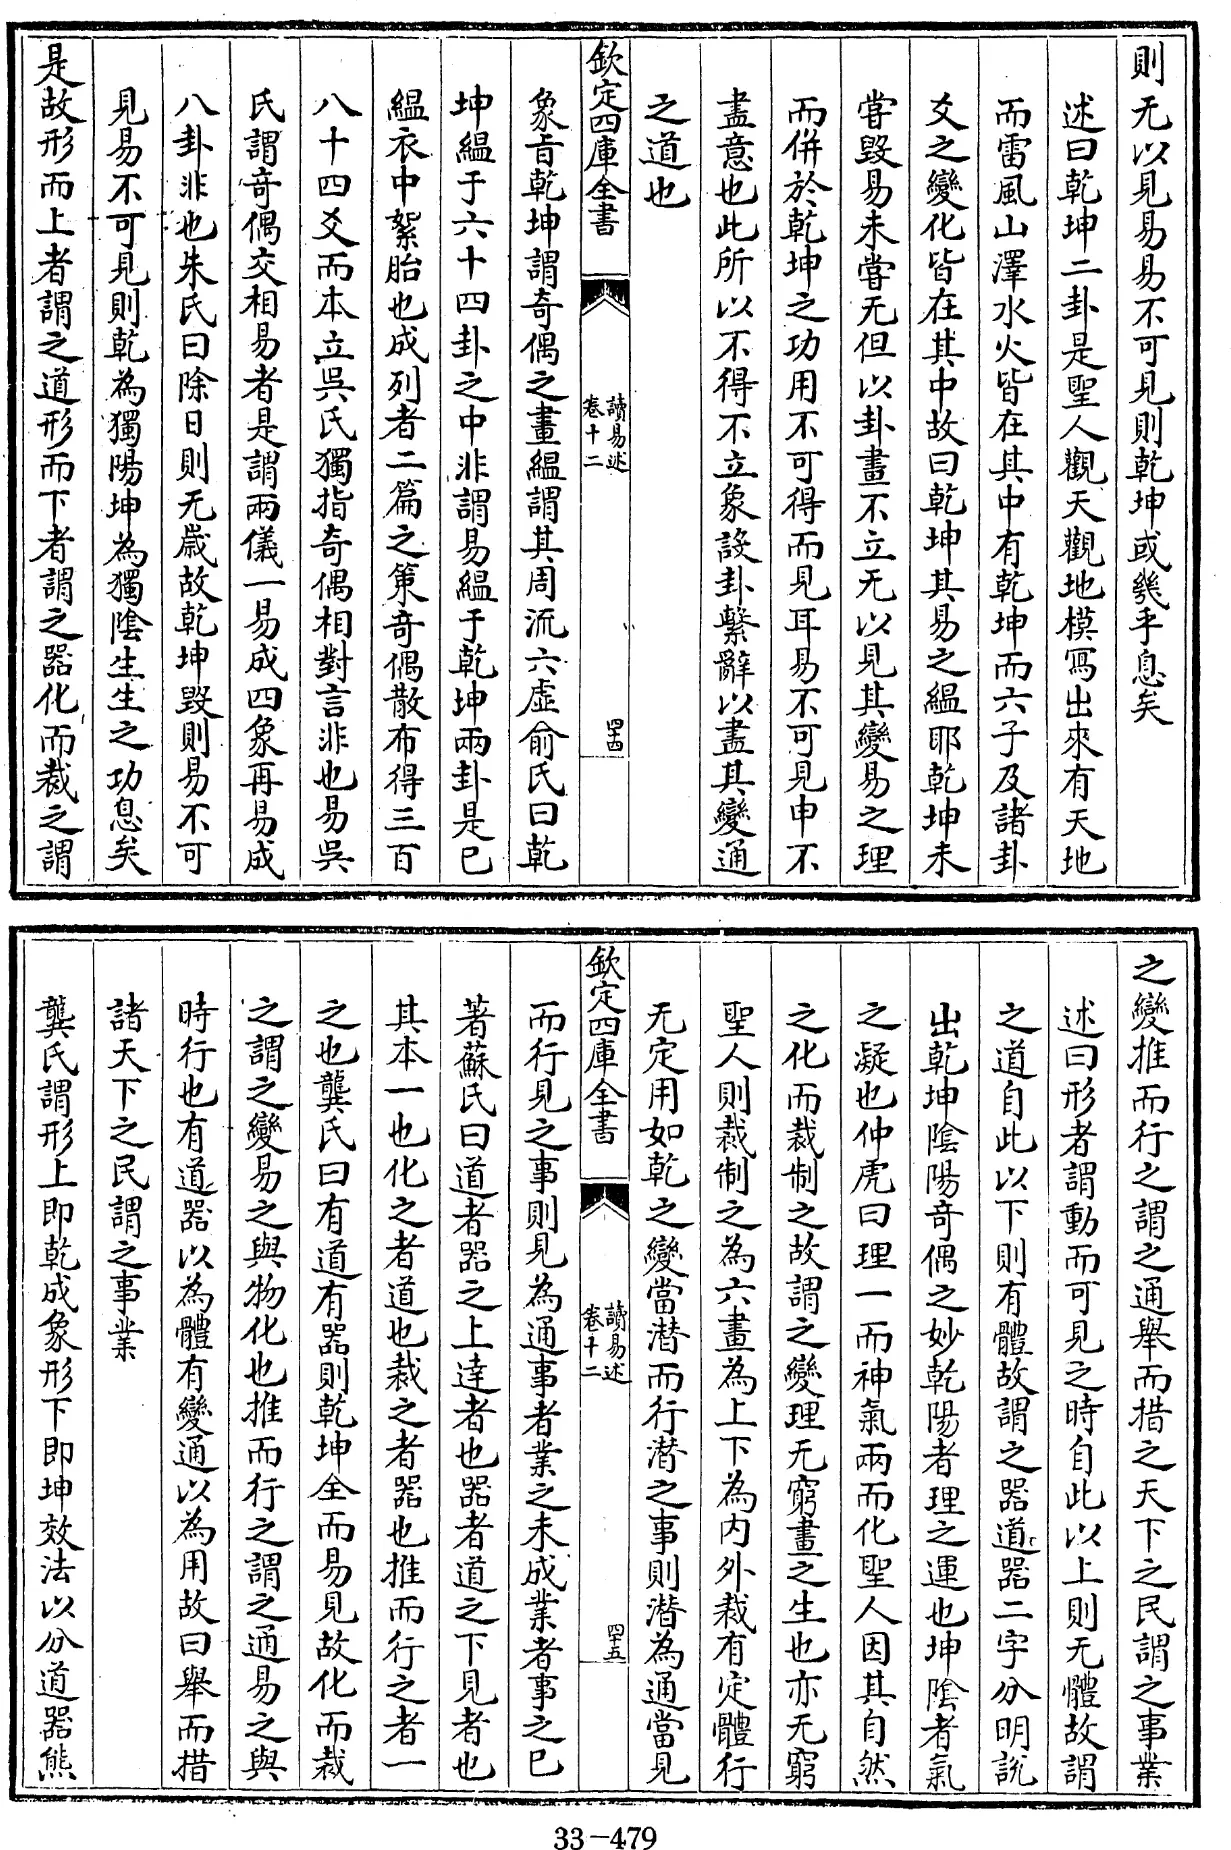 則无以見易易不可見則乾坤或幾乎息矣
述曰乾坤二卦是聖人觀天觀地模寫出來有天地
而雷風山澤水火皆在其中有乾坤而六子及諸卦
爻之變化皆在其中故曰乾坤其易之緼耶乾坤未
嘗毀易未嘗无但以卦畫不立无以見其變易之理
而併於乾坤之功用不可得而見耳易不可見申不
盡意也此所以不得不立象設卦繫辭以盡其變通
之道也
欽定四庫全書
讀易述
卷十二
四十四
象旨乾坤謂奇偶之畫緼謂其周流六虛俞氏曰乾
坤緼于六十四卦之中非謂易緼于乾坤兩卦是已
緼衣中絮胎也成列者二篇之策奇偶散布得三百
八十四爻而本立吳氏獨指奇偶相對言非也易吳
氏謂奇偶交相易者是謂兩儀一易成四象再易成
八卦非也朱氏曰除日則无歲故乾坤毀則易不可
見易不可見則乾為獨陽坤為獨陰生生之功息矣
是故形而上者謂之道形而下者謂之器化而裁之謂
之變推而行之謂之通舉而措之天下之民謂之事業
述曰形者謂動而可見之時自此以上則无體故謂
之道自此以下則有體故謂之器道器二字分明說
出乾坤陰陽奇偶之妙乾陽者理之運也坤陰者氣
之凝也仲虎曰理一而神氣兩而化聖人因其自然
之化而裁制之故謂之變理无窮畫之生也亦无窮
聖人則裁制之為六畫為上下為內外裁有定體行
无定用如乾之變當潛而行潛之事則潛為通當見
欽定四庫全書
讀易述
卷十二
四十五
而行見之事則見為通事者業之未成業者事之已
著蘇氏曰道者器之上達者也器者道之下見者也
其本一也化之者道也裁之者器也推而行之者一
之也龔氏曰有道有器則乾坤全而易見故化而裁
之謂之變易之與物化也推而行之謂之通易之與
時行也有道器以為體有變通以為用故曰舉而措
諸天下之民謂之事業
龔氏謂形上即乾成象形下即坤效法以分道器熊
33-479